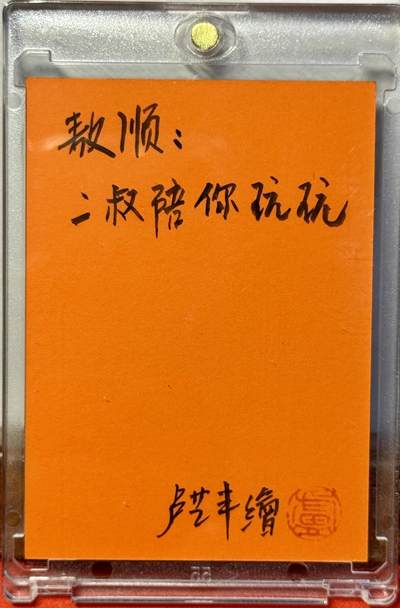 敖顺：
二叔陪你玩玩
卢芸丰繪